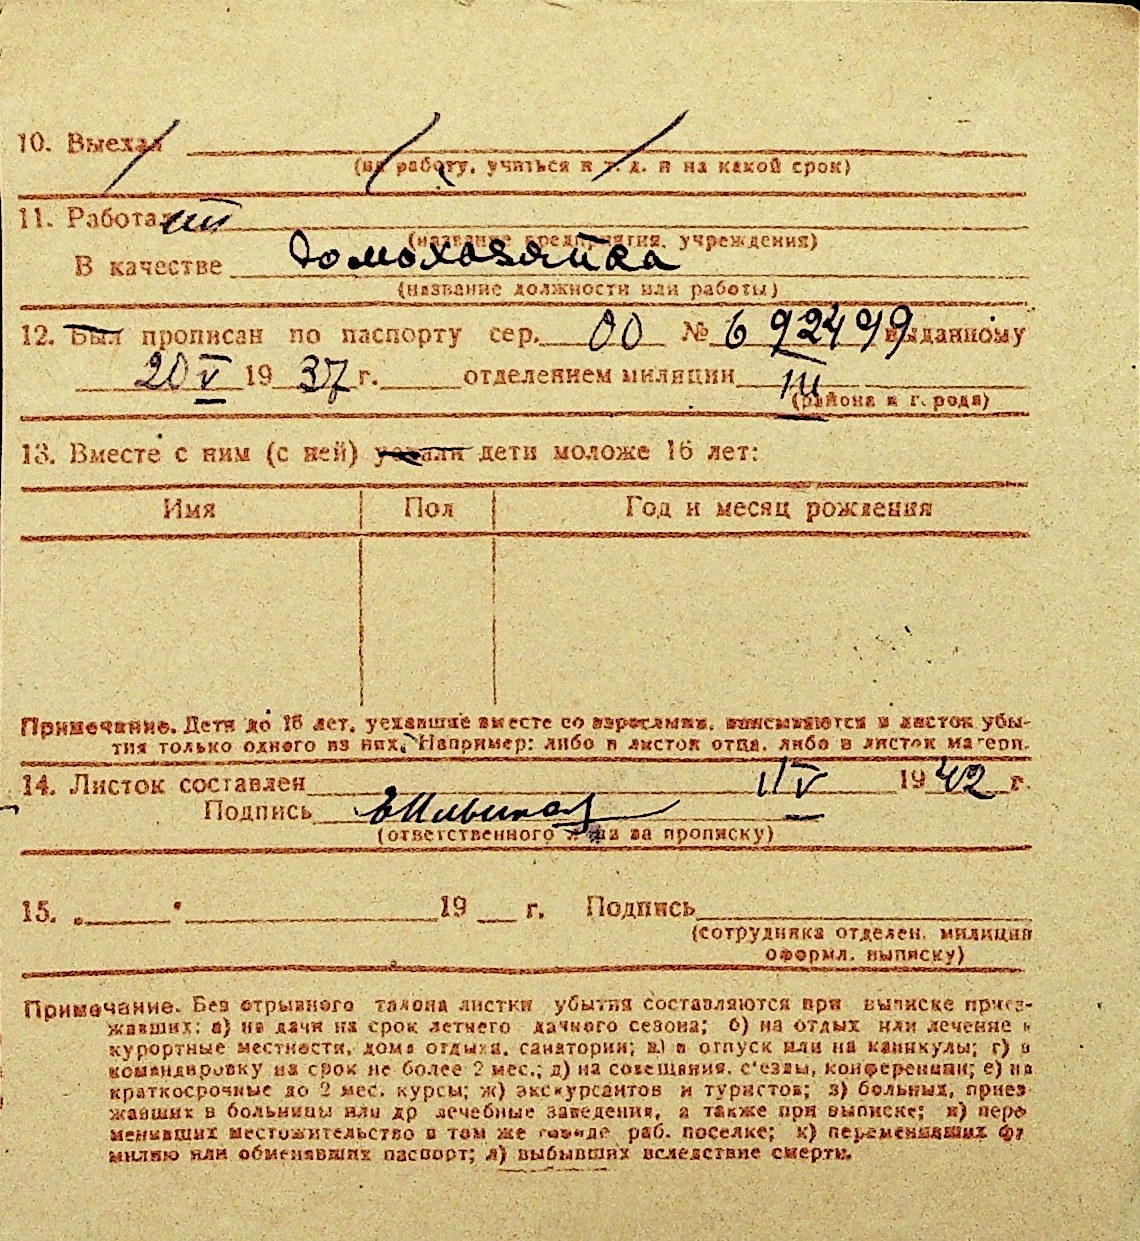 10. Выехал
(на работу, учиться и т. д. и на какой срок)
11. Работа
(название предприятия, учреждения)
В качестве домохозяйка
(название должности или работы)
12. Был прописан по паспорту сер. 00 № 692499 выданному
20 V 1937 г. отделением милиции III
(района и города)
13. Вместе с ним (с ней) уехали дети моложе 16 лет:
Имя Пол Год и месяц рождения
Примечание. Дети до 16 лет, уехавшие вместе со взрослыми, вписываются в листок убы-
тия только одного из них. Например: либо в листок отца, либо в листок матери.
14. Листок составлен 1 IV 1942 г.
Подпись
(ответственного лица за прописку)
15. „ “ 19 г. Подпись
(сотрудника отделен. милиции
оформл. выписку)
Примечание. Без отрывного талона листки убытия составляются при выписке приез-
жавших: а) на дачи на срок летнего дачного сезона; б) на отдых или лечение в
курортные местности, дома отдыха, санатории; в) в отпуск или на каникулы; г) в
командировку на срок не более 2 мес.; д) на совещания, с'езды, конференции; е) на
краткосрочные до 2 мес. курсы; ж) экскурсантов и туристов; з) больных, приез-
жавших в больницы или др лечебные заведения, а также при выписке; и) пере
менивших местожительство в том же городе раб. поселке; к) переменивших фа
милию или обменявших паспорт; л) выбывших вследствие смерти.